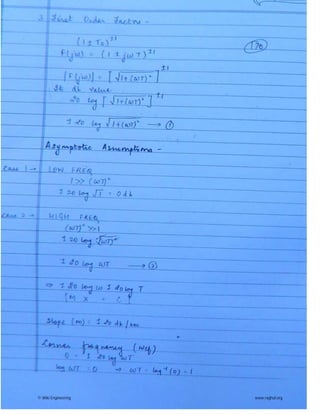 3 First Order Factors -
(1 ± Ts)^±1
(170)
F(jω) = (1 ± jωT)^±1
|F(jω)| = [√1+(ωT)²]^±1
It db value
20 log [√1+(ωT)²]^±1
± 20 log √1+(ωT)² → ①
Asymptotic Assumptions -
Case 1 → LOW FREQ
1 >> (ωT)²
± 20 log √1 = 0 db
Case 2 → HIGH FREQ
(ωT)² >> 1
± 20 log √(ωT)²
± 20 log ωT → ②
⇒ ± 20 log ω ± 20 log T
[M X + C]
Slope (m) = ± 20 db/
Corner frequency (ωcf)
0 = ± 20 log ωT
log ωT = 0 → ωT = log⁻¹(0) = 1
Engineering
www.raghul.org